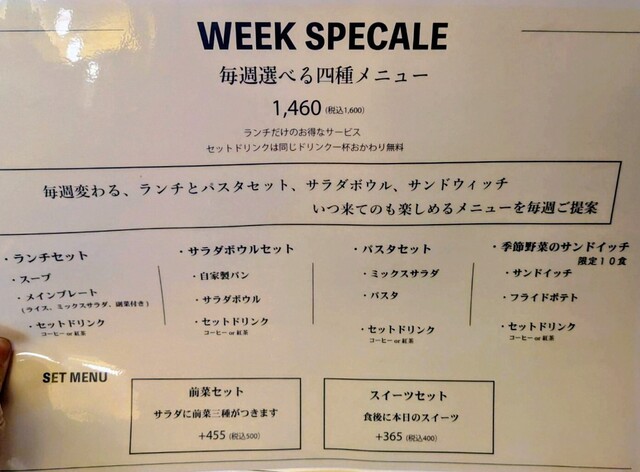 WEEK SPECALE
毎週選べる四種メニュー
1,460 (税込1,600)
ランチだけのお得なサービス
セットドリンクは同じドリンク一杯おかわり無料
毎週変わる、ランチとパスタセット、サラダボウル、サンドウィッチ
いつ来てのも楽しめるメニューを毎週ご提案
・ランチセット
・スープ
・メインプレート
(ライス、ミックスサラダ、副菜付き)
・セットドリンク
コーヒー or 紅茶
・サラダボウルセット
・自家製パン
・サラダボウル
・セットドリンク
コーヒー or 紅茶
・パスタセット
・ミックスサラダ
・パスタ
・セットドリンク
コーヒー or 紅茶
・季節野菜のサンドイッチ
限定10食
・サンドイッチ
・フライドポテト
・セットドリンク
コーヒー or 紅茶
SET MENU
前菜セット
サラダに前菜三種がつきます
+455 (税込500)
スイーツセット
食後に本日のスイーツ
+365 (税込400)